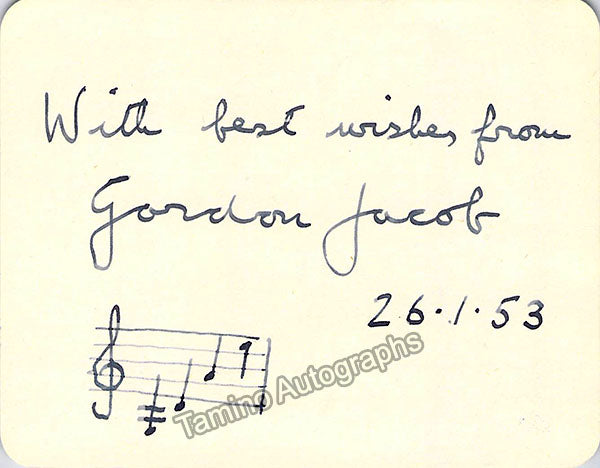 With best wishes from
Gordon Jacob
26.1.53
Tamino Autographs